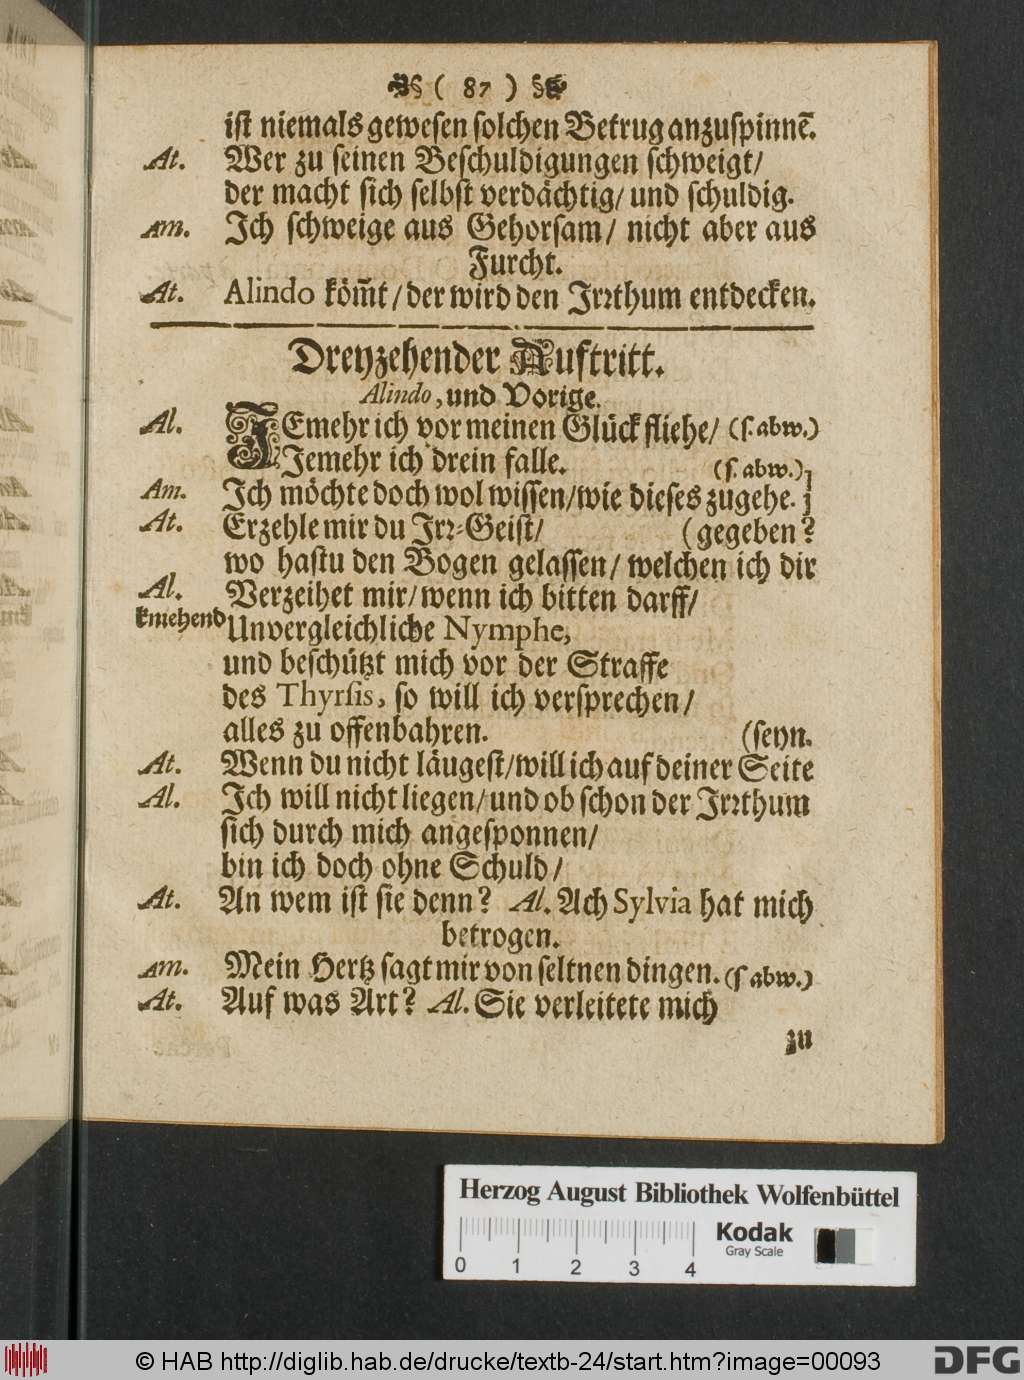 ( 87 )
ist niemals gewesen solchen Betrug anzuspinnē.
At. Wer zu seinen Beschuldigungen schweigt/
der macht sich selbst verdächtig/ und schuldig.
Am. Ich schweige aus Gehorsam/ nicht aber aus
Furcht.
At. Alindo köm̄t/ der wird den Irrthum entdecken.
Dreyzehender Auftritt.
Alindo, und Vorige.
Al. JEmehr ich vor meinen Glück fliehe/ (s. abw.)
Jemehr ich drein falle. (s. abw.)
Am. Ich möchte doch wol wissen/ wie dieses zugehe.
At. Erzehle mir du Irr-Geist/ (gegeben?
wo hastu den Bogen gelassen/ welchen ich dir
Al. Verzeihet mir/ wenn ich bitten darff/
kniehend Unvergleichliche Nymphe,
und beschützt mich vor der Straffe
des Thyrsis, so will ich versprechen/
alles zu offenbahren. (seyn.
At. Wenn du nicht läugest/ will ich auf deiner Seite
Al. Ich will nicht liegen/ und ob schon der Irrthum
sich durch mich angesponnen/
bin ich doch ohne Schuld/
At. An wem ist sie denn? Al. Ach Sylvia hat mich
betrogen.
Am. Mein Hertz sagt mir von seltnen dingen. (s abw.)
At. Auf was Art? Al. Sie verleitete mich
zu
Herzog August Bibliothek Wolfenbüttel
Kodak
Gray Scale
0 1 2 3 4
© HAB http://diglib.hab.de/drucke/textb-24/start.htm?image=00093
DFG